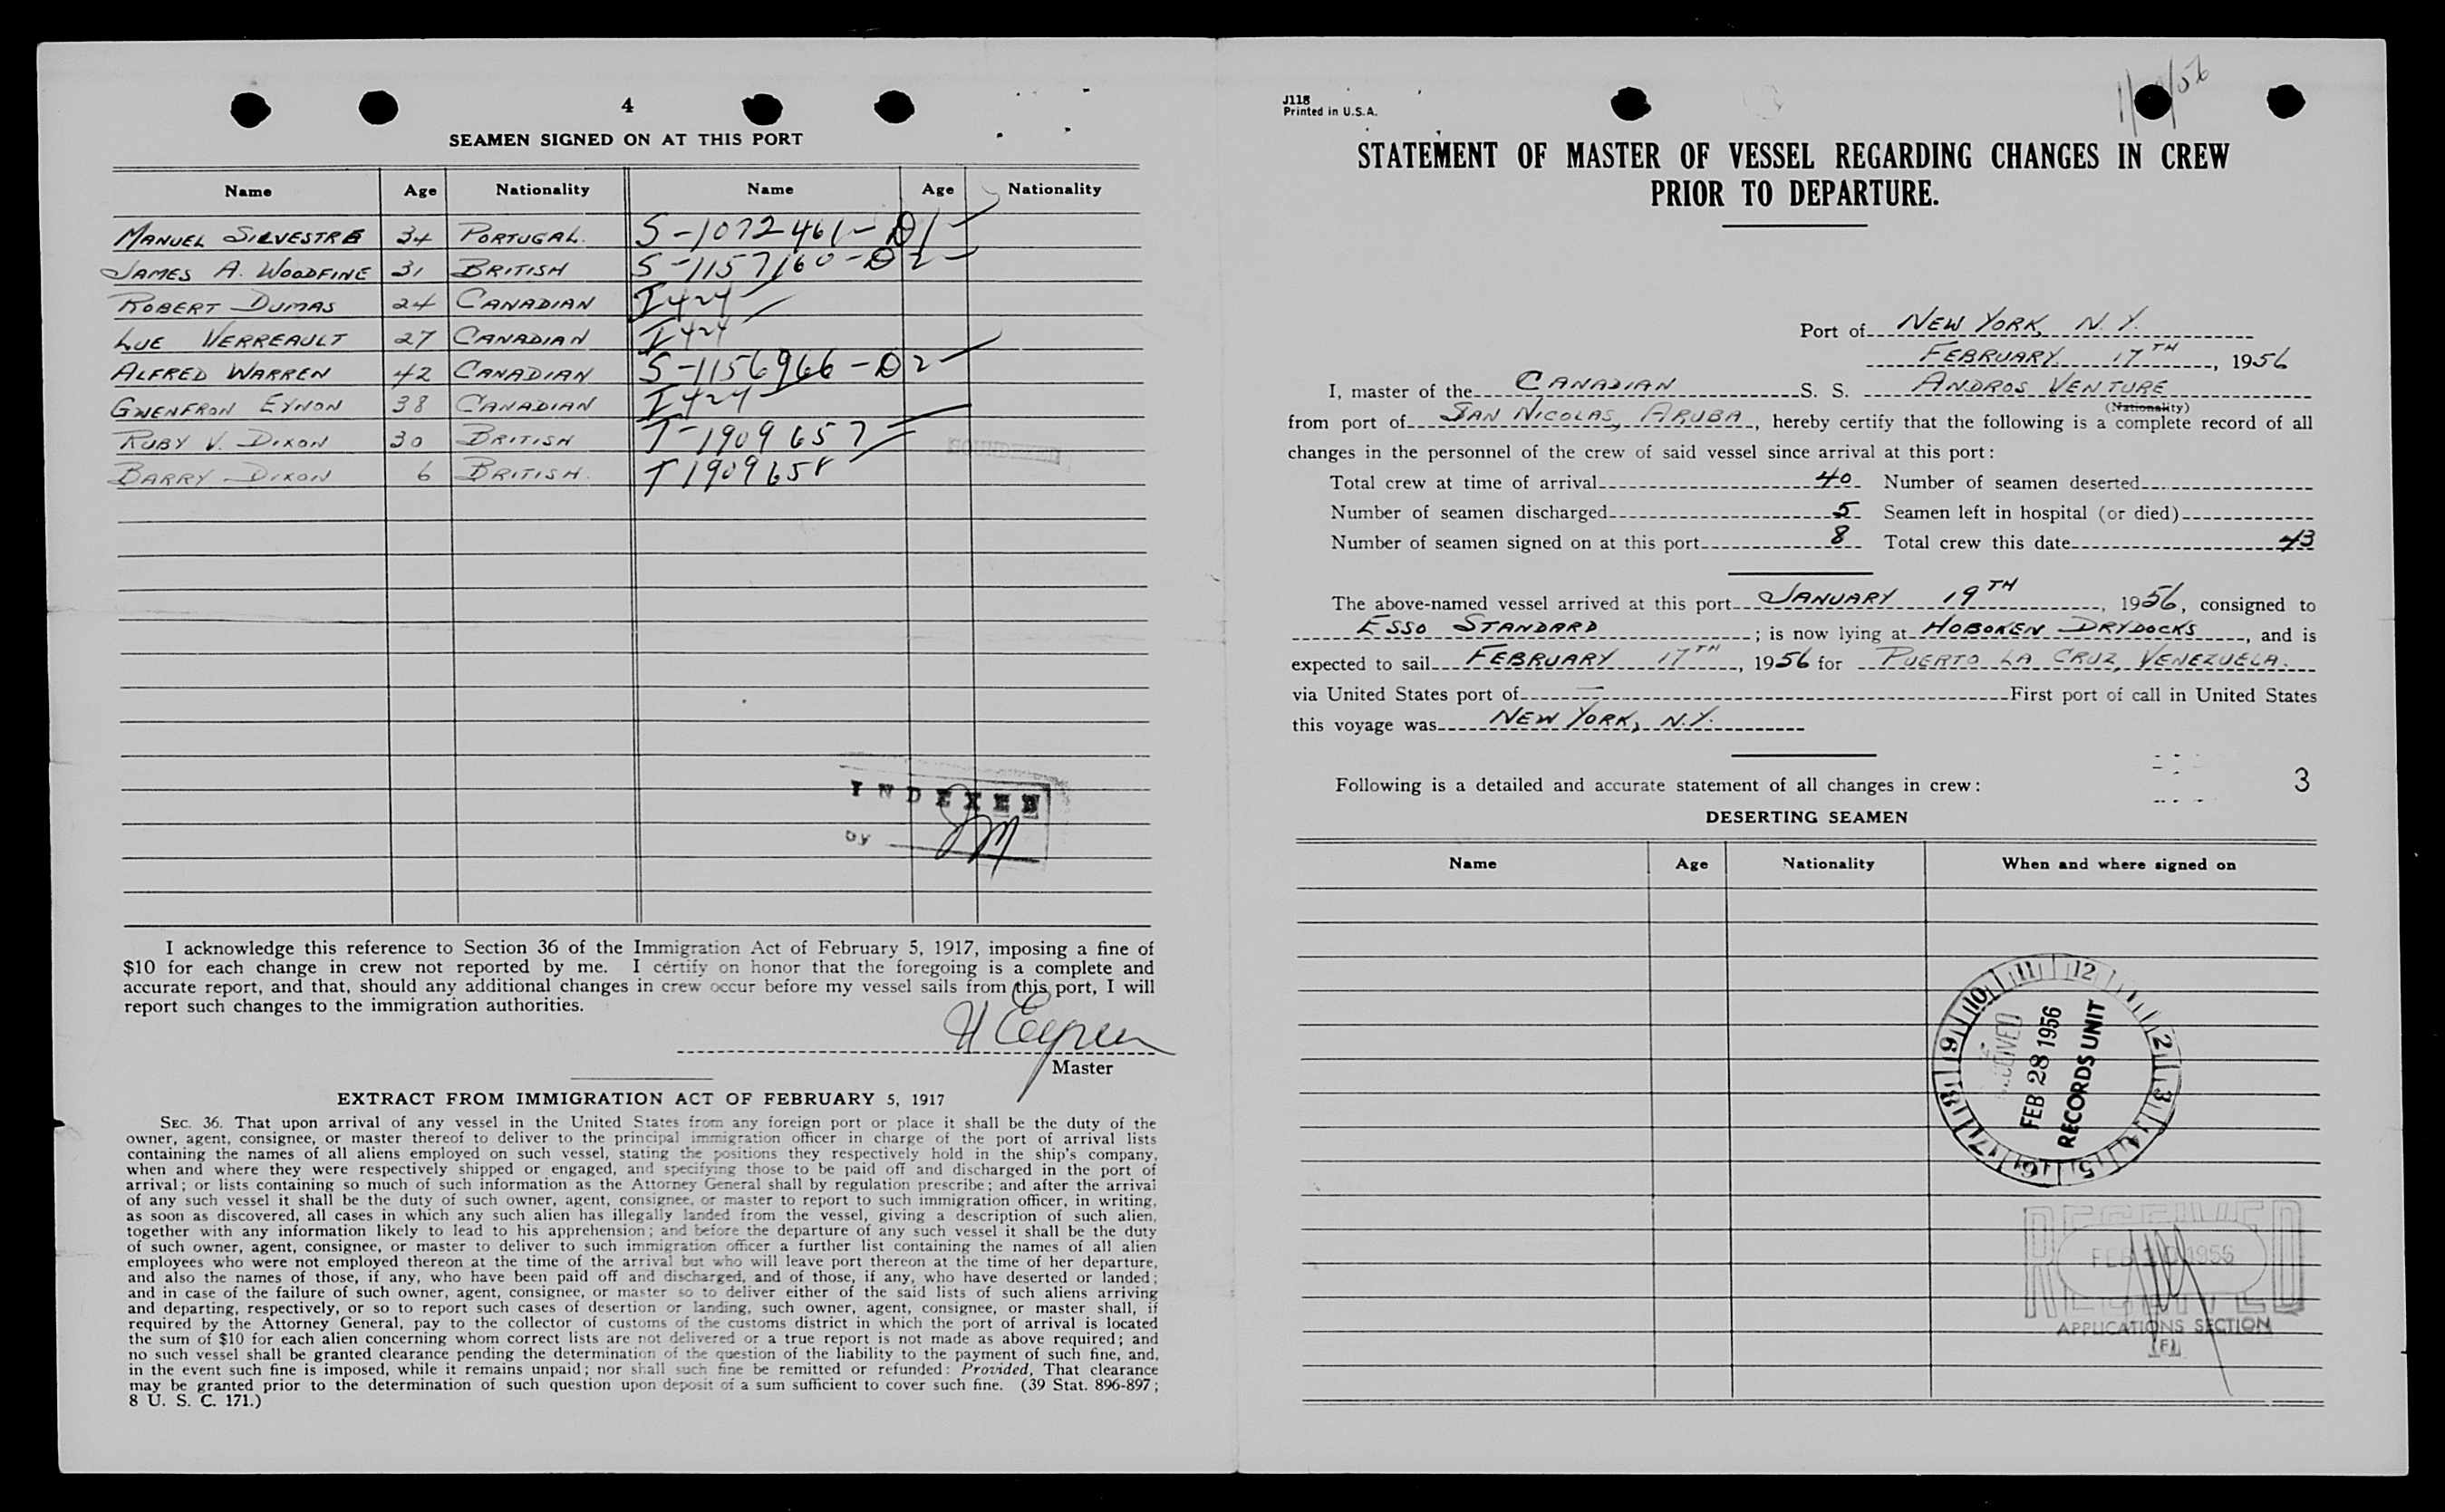 4
SEAMEN SIGNED ON AT THIS PORT
Name Age Nationality Name Age Nationality
MANUEL SILVESTRE 34 PORTUGAL. S-1072461-D1
JAMES A. WOODFINE 31 BRITISH S-1157160-D2
ROBERT DUMAS 24 CANADIAN I424
LUE VERREAULT 27 CANADIAN I424
ALFRED WARREN 42 CANADIAN S-1156966-D2
GWENFRON EYNON 38 CANADIAN I424
RUBY V. DIXON 30 BRITISH T-1909657
BARRY DIXON 6 BRITISH. T1909658
INDEXED
by
I acknowledge this reference to Section 36 of the Immigration Act of February 5, 1917, imposing a fine of
$10 for each change in crew not reported by me. I certify on honor that the foregoing is a complete and
accurate report, and that, should any additional changes in crew occur before my vessel sails from this port, I will
report such changes to the immigration authorities.
Master
EXTRACT FROM IMMIGRATION ACT OF FEBRUARY 5, 1917
SEC. 36. That upon arrival of any vessel in the United States from any foreign port or place it shall be the duty of the
owner, agent, consignee, or master thereof to deliver to the principal immigration officer in charge of the port of arrival lists
containing the names of all aliens employed on such vessel, stating the positions they respectively hold in the ship's company,
when and where they were respectively shipped or engaged, and specifying those to be paid off and discharged in the port of
arrival; or lists containing so much of such information as the Attorney General shall by regulation prescribe; and after the arrival
of any such vessel it shall be the duty of such owner, agent, consignee, or master to report to such immigration officer, in writing,
as soon as discovered, all cases in which any such alien has illegally landed from the vessel, giving a description of such alien,
together with any information likely to lead to his apprehension; and before the departure of any such vessel it shall be the duty
of such owner, agent, consignee, or master to deliver to such immigration officer a further list containing the names of all alien
employees who were not employed thereon at the time of the arrival but who will leave port thereon at the time of her departure,
and also the names of those, if any, who have been paid off and discharged, and of those, if any, who have deserted or landed;
and in case of the failure of such owner, agent, consignee, or master so to deliver either of the said lists of such aliens arriving
and departing, respectively, or so to report such cases of desertion or landing, such owner, agent, consignee, or master shall, if
required by the Attorney General, pay to the collector of customs of the customs district in which the port of arrival is located
the sum of $10 for each alien concerning whom correct lists are not delivered or a true report is not made as above required; and
no such vessel shall be granted clearance pending the determination of the question of the liability to the payment of such fine, and,
in the event such fine is imposed, while it remains unpaid; nor shall such fine be remitted or refunded: Provided, That clearance
may be granted prior to the determination of such question upon deposit of a sum sufficient to cover such fine. (39 Stat. 896-897;
8 U. S. C. 171.)
J118
Printed in U.S.A.
STATEMENT OF MASTER OF VESSEL REGARDING CHANGES IN CREW
PRIOR TO DEPARTURE.
Port of NEW YORK, N.Y.
FEBRUARY 17TH, 1956
I, master of the CANADIAN S. S. ANDROS VENTURE
(Nationality)
from port of SAN NICOLAS, ARUBA, hereby certify that the following is a complete record of all
changes in the personnel of the crew of said vessel since arrival at this port:
Total crew at time of arrival 40 Number of seamen deserted
Number of seamen discharged 5 Seamen left in hospital (or died)
Number of seamen signed on at this port 8 Total crew this date 43
The above-named vessel arrived at this port JANUARY 19TH, 1956, consigned to
ESSO STANDARD; is now lying at HOBOKEN DRYDOCKS, and is
expected to sail FEBRUARY 17TH, 1956 for PUERTO LA CRUZ, VENEZUELA.
via United States port of — First port of call in United States
this voyage was NEW YORK, N.Y.
Following is a detailed and accurate statement of all changes in crew: 3
DESERTING SEAMEN
Name Age Nationality When and where signed on
11 12 1 2 3 4 5 6 7 8 9 10
RECEIVED
FEB 28 1956
RECORDS UNIT
RECEIVED
FEB 1956
APPLICATIONS SECTION